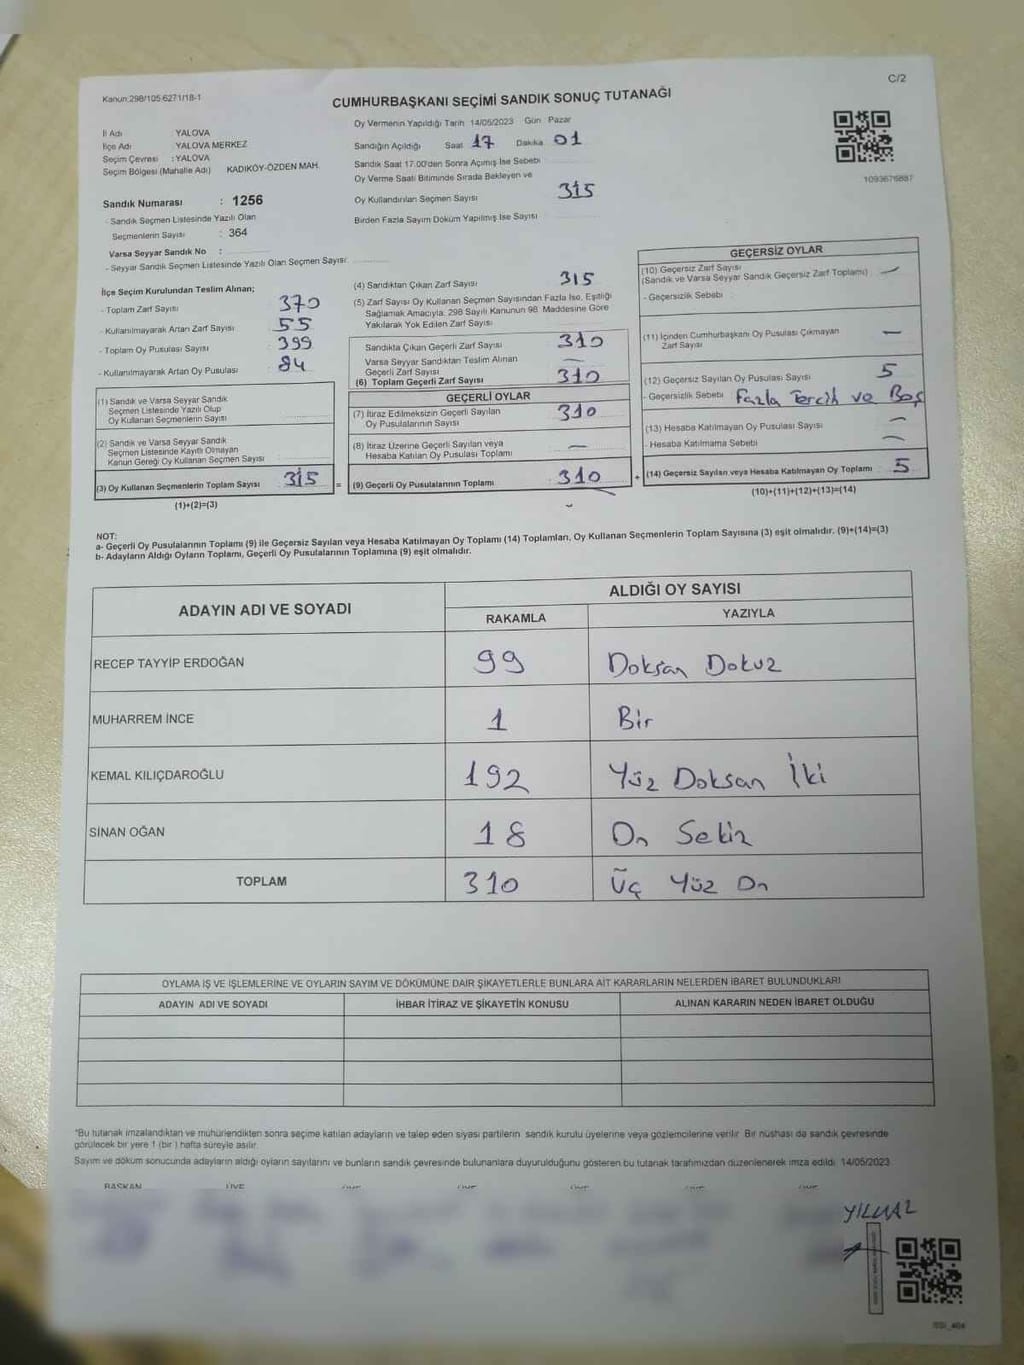 Kanun:298/105.6271/18-1
C/2
CUMHURBAŞKANI SEÇİMİ SANDIK SONUÇ TUTANAĞI
İl Adı : YALOVA
İlçe Adı : YALOVA MERKEZ
Seçim Çevresi : YALOVA
Seçim Bölgesi (Mahalle Adı) KADIKÖY-ÖZDEN MAH.
Sandık Numarası : 1256
- Sandık Seçmen Listesinde Yazılı Olan
Seçmenlerin Sayısı : 364
Varsa Seyyar Sandık No :
- Seyyar Sandık Seçmen Listesinde Yazılı Olan Seçmen Sayısı:
Oy Vermenin Yapıldığı Tarih 14/05/2023 Gün Pazar
Sandığın Açıldığı Saat 17 Dakika 01
Sandık Saat 17.00'den Sonra Açımış İse Sebebi
Oy Verme Saati Bitiminde Sırada Bekleyen ve
Oy Kullandırılan Seçmen Sayısı 315
Birden Fazla Sayım Döküm Yapılmış İse Sayısı
1093676887
İlçe Seçim Kurulundan Teslim Alınan;
- Toplam Zarf Sayısı 370
- Kullanılmayarak Artan Zarf Sayısı 55
- Toplam Oy Pusulası Sayısı 399
- Kullanılmayarak Artan Oy Pusulası 84
(1) Sandık ve Varsa Seyyar Sandık
Seçmen Listesinde Yazılı Olup
Oy Kullanan Seçmenlerin Sayısı
(2) Sandık ve Varsa Seyyar Sandık
Seçmen Listesinde Kayıtlı Olmayan
Kanun Gereği Oy Kullanan Seçmen Sayısı
(3) Oy Kullanan Seçmenlerin Toplam Sayısı 315 =
(1)+(2)=(3)
(4) Sandıktan Çıkan Zarf Sayısı 315
(5) Zarf Sayısı Oy Kullanan Seçmen Sayısından Fazla İse, Eşitliği
Sağlamak Amacıyla; 298 Sayılı Kanunun 98. Maddesine Göre
Yakılarak Yok Edilen Zarf Sayısı
Sandıkta Çıkan Geçerli Zarf Sayısı 310
Varsa Seyyar Sandıktan Teslim Alınan
Geçerli Zarf Sayısı —
(6) Toplam Geçerli Zarf Sayısı 310
GEÇERLİ OYLAR
(7) İtiraz Edilmeksizin Geçerli Sayılan
Oy Pusulalarının Sayısı 310
(8) İtiraz Üzerine Geçerli Sayılan veya
Hesaba Katılan Oy Pusulası Toplamı —
(9) Geçerli Oy Pusulalarının Toplamı 310 +
GEÇERSİZ OYLAR
(10) Geçersiz Zarf Sayısı
(Sandık ve Varsa Seyyar Sandık Geçersiz Zarf Toplamı) —
- Geçersizlik Sebebi
(11) İçinden Cumhurbaşkanı Oy Pusulası Çıkmayan
Zarf Sayısı —
(12) Geçersiz Sayılan Oy Pusulası Sayısı 5
- Geçersizlik Sebebi Fazla Tercih ve Boş
(13) Hesaba Katılmayan Oy Pusulası Sayısı —
- Hesaba Katılmama Sebebi —
(14) Geçersiz Sayılan veya Hesaba Katılmayan Oy Toplamı 5
(10)+(11)+(12)+(13)=(14)
NOT:
a- Geçerli Oy Pusulalarının Toplamı (9) ile Geçersiz Sayılan veya Hesaba Katılmayan Oy Toplamı (14) Toplamları, Oy Kullanan Seçmenlerin Toplam Sayısına (3) eşit olmalıdır. (9)+(14)=(3)
b- Adayların Aldığı Oyların Toplamı, Geçerli Oy Pusulalarının Toplamına (9) eşit olmalıdır.
ADAYIN ADI VE SOYADI
ALDIĞI OY SAYISI
RAKAMLA YAZIYLA
RECEP TAYYİP ERDOĞAN 99 Doksan Dokuz
MUHARREM İNCE 1 Bir
KEMAL KILIÇDAROĞLU 192 Yüz Doksan İki
SİNAN OĞAN 18 On Sekiz
TOPLAM 310 Üç Yüz On
OYLAMA İŞ VE İŞLEMLERİNE VE OYLARIN SAYIM VE DÖKÜMÜNE DAİR ŞİKAYETLERLE BUNLARA AİT KARARLARIN NELERDEN İBARET BULUNDUKLARI
ADAYIN ADI VE SOYADI İHBAR İTİRAZ VE ŞİKAYETİN KONUSU ALINAN KARARIN NEDEN İBARET OLDUĞU
*Bu tutanak imzalandıktan ve mühürlendikten sonra seçime katılan adayların ve talep eden siyasi partilerin sandık kurulu üyelerine veya gözlemcilerine verilir. Bir nüshası da sandık çevresinde
görülecek bir yere 1 (bir ) hafta süreyle asılır.
Sayım ve döküm sonucunda adayların aldığı oyların sayılarını ve bunların sandık çevresinde bulunanlara duyurulduğunu gösteren bu tutanak tarafımızdan düzenlenerek imza edildi. 14/05/2023
BAŞKAN ÜYE
YILMAZ